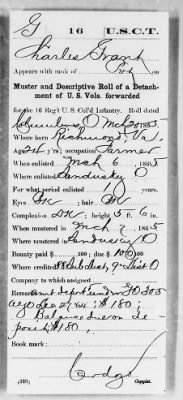 G 16 U.S.C.T.
Charles Grant
Appears with rank of Pvt on
Muster and Descriptive Roll of a Detachment
of U. S. Vols. forwarded
for the 16 Reg't U.S. Col'd Infantry. Roll dated
Columbus O Mch 20, 1865.
Where born Richmond Va.
Age 24 y'rs; occupation Farmer
When enlisted Mch 6, 1865
Where enlisted Sandusky O
For what period enlisted 1 years.
Eyes Dk; hair Dk
Complexion Dk; height 5 ft. 6 in.
When mustered in Mch 7, 1865
Where mustered in Sandusky O
Bounty paid $ 100; due $ 100
Where credited
Company to which assigned
Remarks: Amt deposit under G O 305
A G O Dec 27/64 $180;
Balance due on de
posit $180.
Book mark:
(339) Copyist.